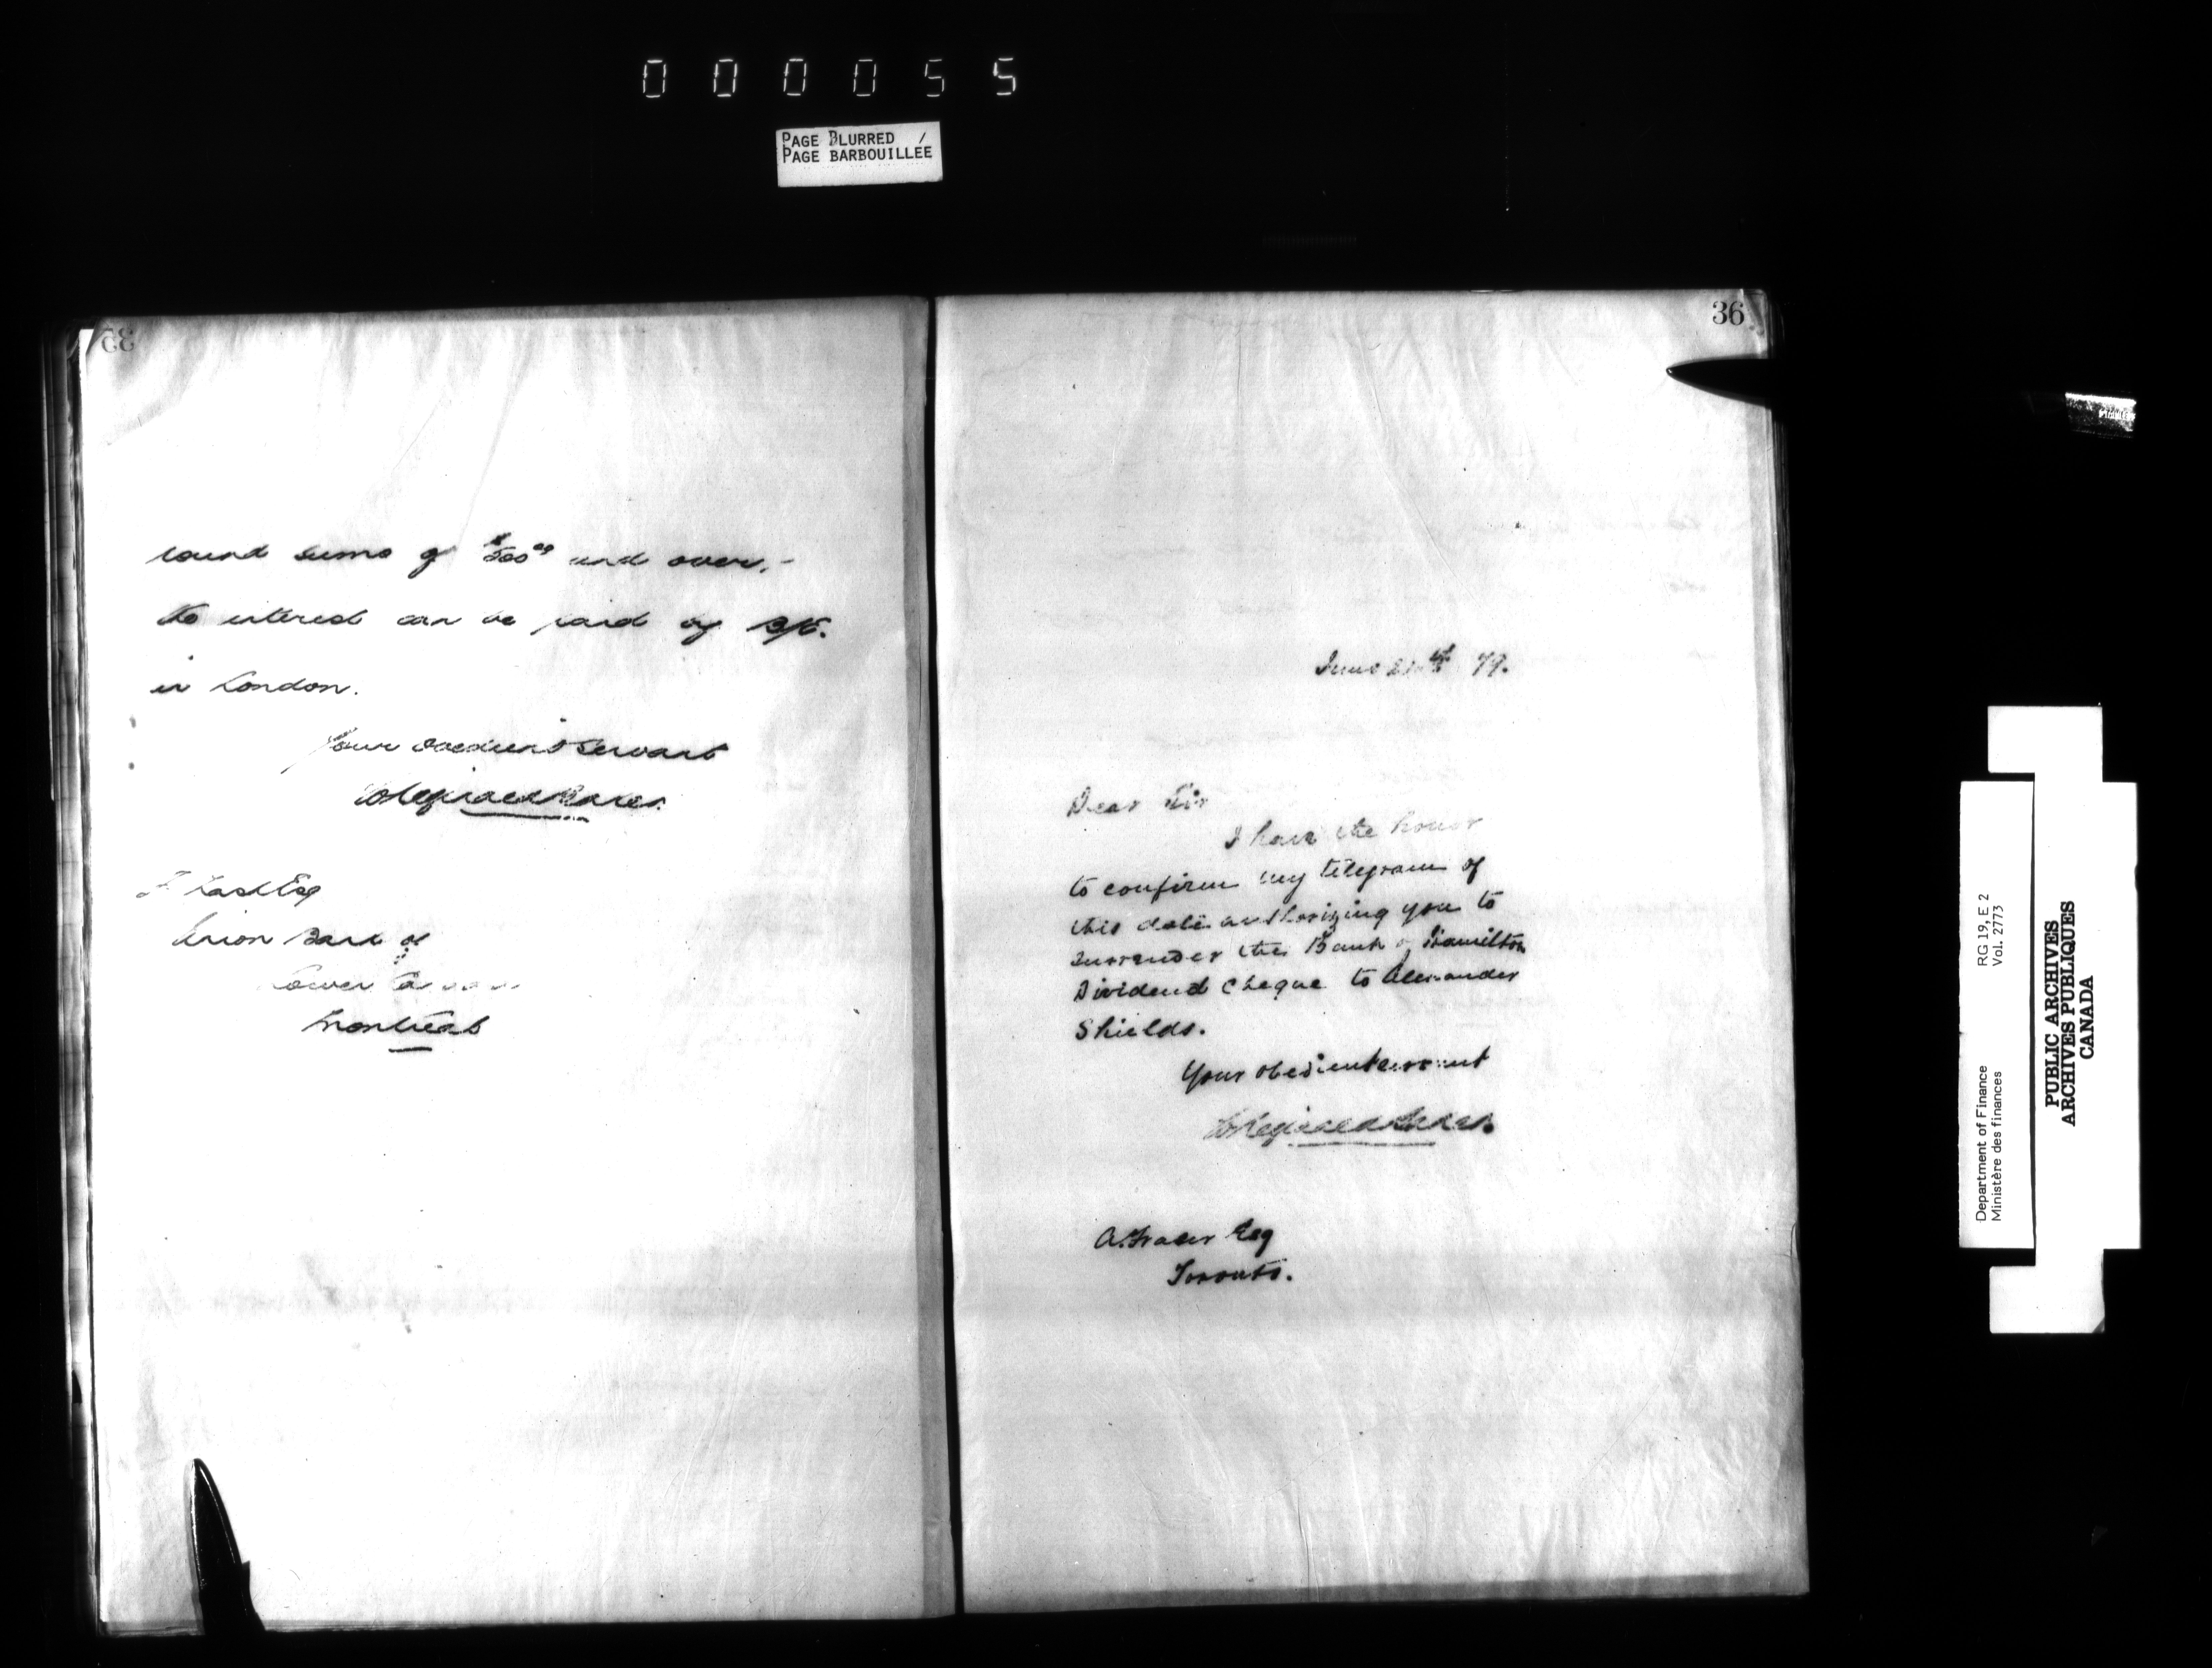 000055
PAGE BLURRED /
PAGE BARBOUILLEE
35
round sums of $500 00 and over.-
The interest can be paid by B/E.
in London.
Your obedient servant
Esq
Union Bank of
Lower Canada
Montreal
36
June 79.
Dear Sir
I have the honor
to confirm my telegram of
this date authorizing you to
surrender the Bank of Hamilton
Dividend Cheque to Alexander
Shields.
Your obedient servant
A. Fraser Esq
Toronto.
Department of Finance RG 19, E 2
Ministère des finances Vol. 2773
PUBLIC ARCHIVES
ARCHIVES PUBLIQUES
CANADA